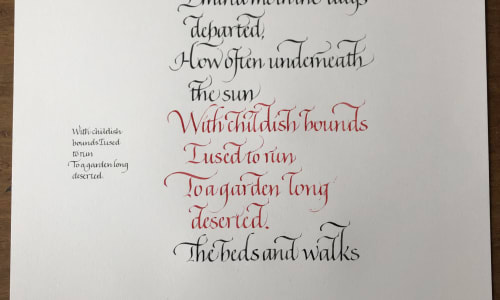 I mind me in the days
departed,
How often underneath
the sun
With childish bounds
I used to run
To a garden long
deserted.
The beds and walks
With childish
bounds I used
to run
To a garden long
deserted.